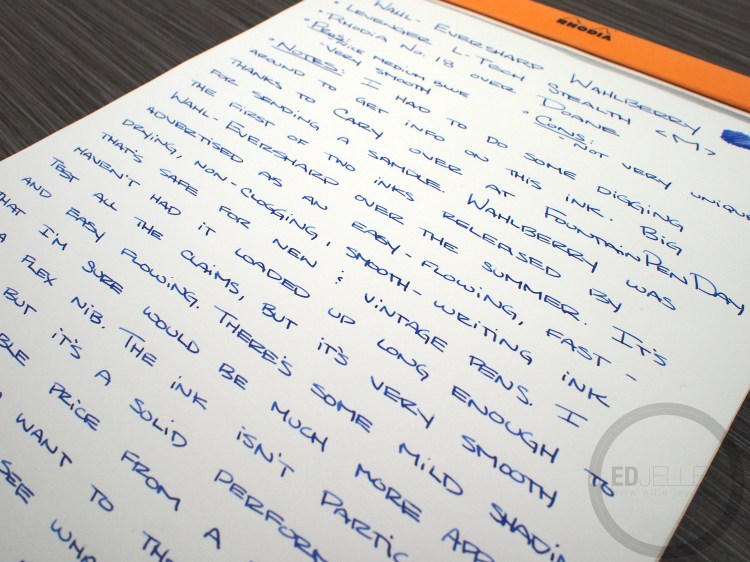 RHODIA
WAHL-EVERSHARP WAHLBERRY
• LEVENGER L-TECH STEALTH <M>
• RHODIA No. 18 OVER DOANE
• PROS: • CONS:
-NICE MEDIUM BLUE -NOT VERY UNIQUE
-VERY SMOOTH
• NOTES: I HAD TO DO SOME DIGGING
AROUND TO GET INFO ON THIS INK. BIG
THANKS TO CARY OVER AT FOUNTAINPENDAY
FOR SENDING A SAMPLE. WAHLBERRY WAS
THE FIRST OF TWO INKS RELEASED BY
WAHL-EVERSHARP OVER THE SUMMER. IT'S
ADVERTISED AS AN EASY-FLOWING, FAST-
DRYING, NON-CLOGGING, SMOOTH-WRITING INK
THAT'S SAFE FOR NEW & VINTAGE PENS. I
HAVEN'T HAD IT LOADED UP LONG ENOUGH TO
TEST ALL THE CLAIMS, BUT IT'S VERY SMOOTH
AND EASY FLOWING. THERE'S SOME MILD SHADIN
THAT I'M SURE WOULD BE MUCH MORE APP
A FLEX NIB. THE INK ISN'T PARTIC
BUT IT'S A SOLID PERFORM
BLE PRICE FROM A
WANT TO TH
SEE WHA
EDJELLE